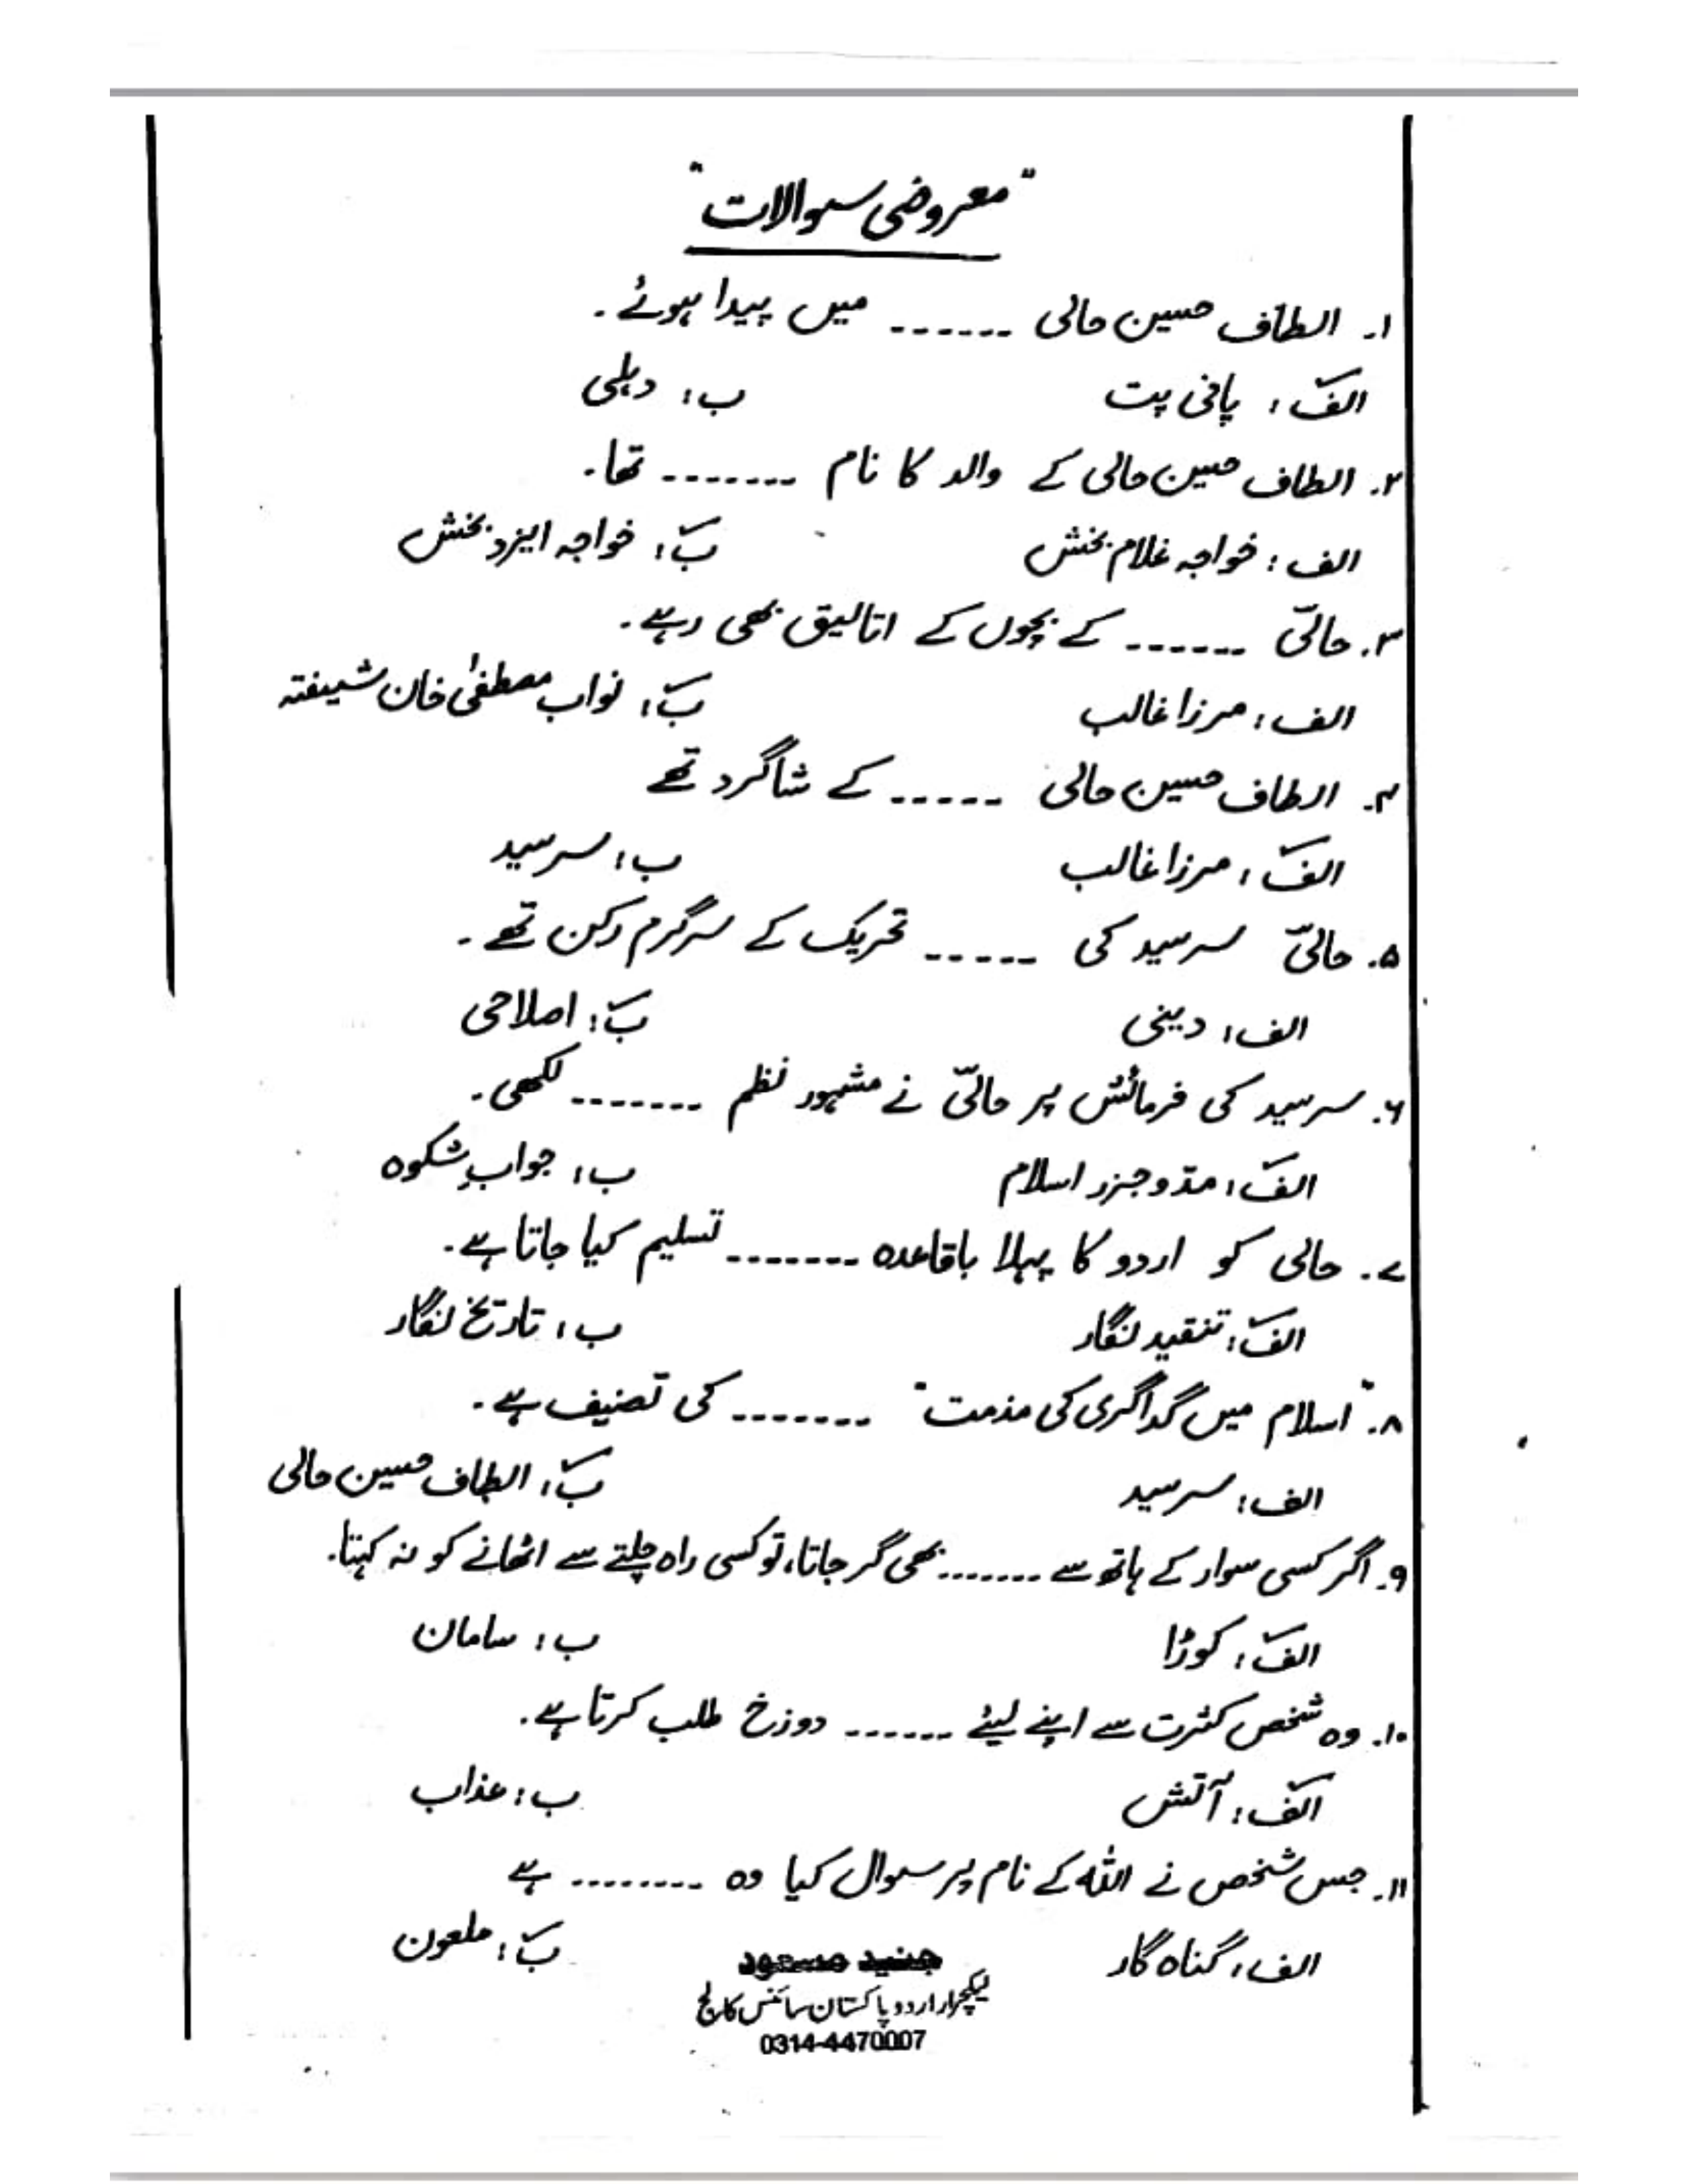 "معروضی سوالات"
۱. الطاف حسین حالی ------ میں پیدا ہوئے۔
الف: پانی پت ب: دہلی
۲. الطاف حسین حالی کے والد کا نام ------- تھا۔
الف: خواجہ غلام بخش ب: خواجہ ایزد بخش
۳. حالیؔ ------ کے بچوں کے اتالیق بھی رہے۔
الف: مرزا غالب ب: نواب مصطفیٰ خان شیفتہ
۴. الطاف حسین حالی ----- کے شاگرد تھے
الف: مرزا غالب ب: سرسید
۵. حالیؔ سرسید کی ------ تحریک کے سرگرم رکن تھے۔
الف: دینی ب: اصلاحی
۶. سرسید کی فرمائش پر حالیؔ نے مشہور نظم ------- لکھی۔
الف: مدّوجزر اسلام ب: جوابِ شکوہ
۷. حالی کو اردو کا پہلا باقاعدہ ------- تسلیم کیا جاتا ہے۔
الف: تنقید نگار ب: تاریخ نگار
۸. "اسلام میں گداگری کی مذمت" ------- کی تصنیف ہے۔
الف: سرسید ب: الطاف حسین حالی
۹. اگر کسی سوار کے ہاتھ سے ------- بھی گر جاتا، تو کسی راہ چلتے سے اٹھانے کو نہ کہتا۔
الف: کوڑا ب: سامان
۱۰. وہ شخص کثرت سے اپنے لیئے ------ دوزخ طلب کرتا ہے۔
الف: آتش ب: عذاب
۱۱. جس شخص نے اللہ کے نام پر سوال کیا وہ -------- ہے
الف: گناہ گار ب: ملعون
جنید مسعود
لیکچرار اردو پاکستان سائنس کالج
0314-4470007